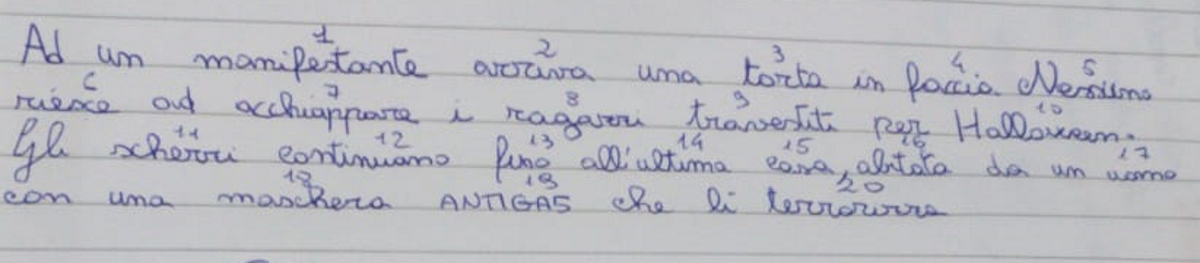 1 2 3 4 5
Ad un manifestante arriva una torta in faccia Nessuno
6 7 8 9 10
riesce ad acchiappare i ragazzi travestiti per Halloween.
11 12 13 14 15 16 17
Gli scherzi continuano fino all'ultima casa, abitata da un uomo
18 19 20
con una maschera ANTIGAS che li terrorizza